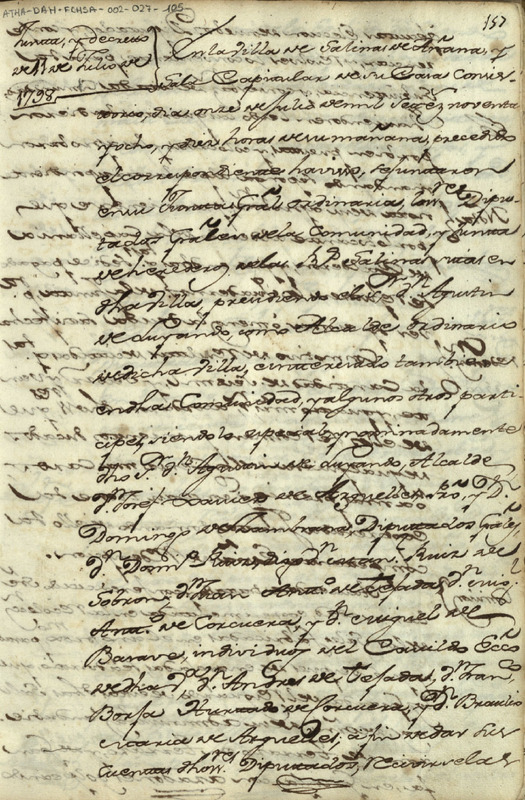 ATHA-DAH-FCHSA-002-027-105
157
Junta, y decreto
de 11 de Julio de
1798
En la Villa de Salinas de Añana, y
Sala Capitular de su Casa Consis-
torio, dias once de Julio de mil setez. noventa
y ocho, y diez horas de su mañana, precedido
el correspondiente haviso, se juntaron
en su Gral. ordinaria, los Sres. Dipu-
tados Grales. de la Comunidad, y Junta
de herederos de las Rs. Salinas, sitas en
dha Villa, presidiendo el Sr. Dn. Agustin
de Luyando, como Alcalde ordinario
de dicha Villa, e interesado tambien
en dha Comunidad, y algunos otros parti-
cipes, siendo lo especial y nominadamente
dho Sr. Dn. Agustin de Luyando, Alcalde
Dn. Josef Xavier de Arguelles, y Dn.
Domingo de Zambrana, Diputados Grales,
Dn. Ruiz de
Sobron, Dn. Juan Anto. de Tejada, Dn.
Anto. de Corcuera, y Dn. Miguel de
Barave, individuos del Cavildo Ecco.
de dha Va. Dn. Andres de Tejada, Dn. Fran.
Borja Hurtado de Corcuera, y Dn. Braulio
Maria de Arguelles, a fin de dar sus
Cuentas dhos Sres. Diputados, recivirselas